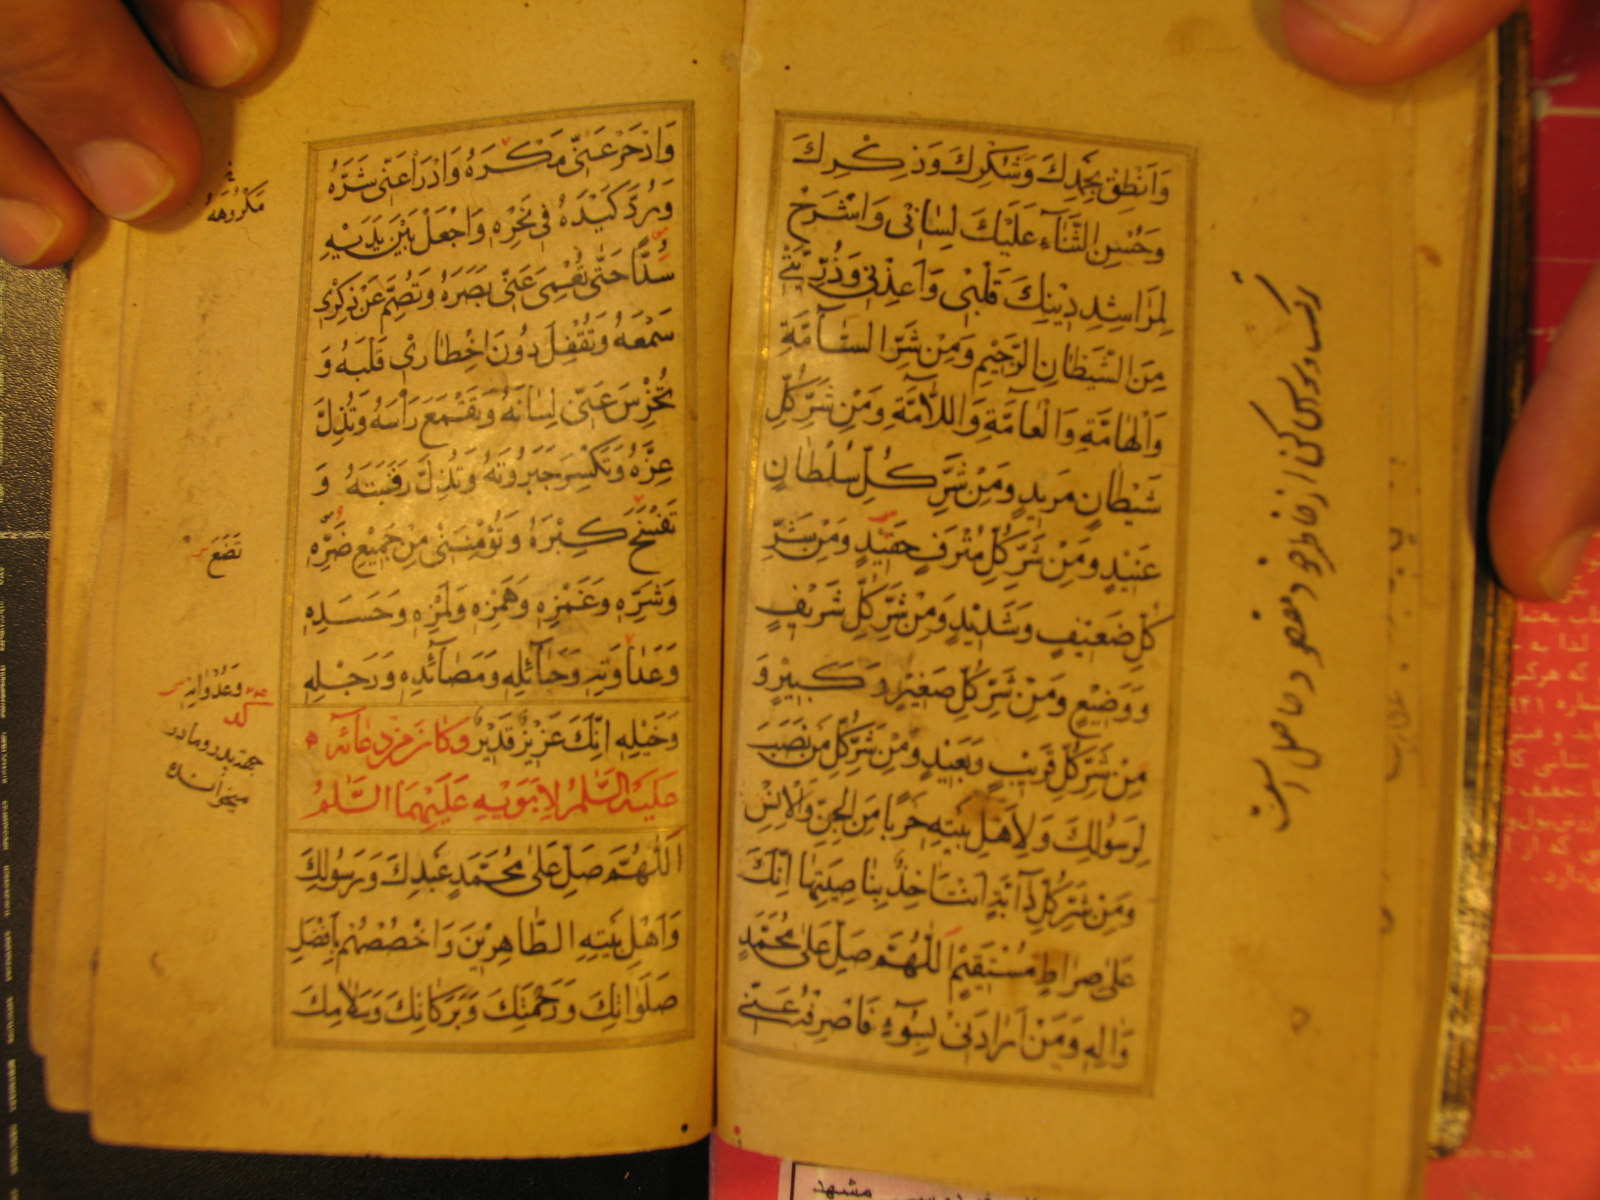 وَاَنْطِقْ بِحَمْدِكَ وَشُكْرِكَ وَذِكْرِكَ
وَحُسْنِ الثَّنَآءِ عَلَيْكَ لِسٰانٖى وَاشْرَحْ
لِمَرٰاشِدِ دٖينِكَ قَلْبٖى وَاَعِذْنٖى وَذُرِّيَّتٖى
مِنَ الشَّيْطٰانِ الرَّجٖيمِ وَمِنْ شَرِّ السّٰآمَّةِ
وَالْهٰامَّةِ وَالْعٰامَّةِ وَاللّٰآمَّةِ وَمِنْ شَرِّ كُلِّ
شَيْطٰانٍ مَرٖيدٍ وَمِنْ شَرِّ كُلِّ سُلْطٰانٍ
عَنٖيدٍ وَمِنْ شَرِّ كُلِّ مُتْرَفٍ حَفٖيدٍ وَمِنْ شَرِّ
كُلِّ ضَعٖيفٍ وَشَدٖيدٍ وَمِنْ شَرِّ كُلِّ شَرٖيفٍ
وَوَضٖيعٍ وَمِنْ شَرِّ كُلِّ صَغٖيرٍ وَكَبٖيرٍ وَ
مِنْ شَرِّ كُلِّ قَرٖيبٍ وَبَعٖيدٍ وَمِنْ شَرِّ كُلِّ مَنْ نَصَبَ
لِرَسُولِكَ وَلِاَهْلِ بَيْتِهٖ حَرْبًا مِنَ الْجِنِّ وَالْاِنْسِ
وَمِنْ شَرِّ كُلِّ دٰآبَّةٍ اَنْتَ اٰخِذٌ بِنٰاصِيَتِهٰا اِنَّكَ
عَلٰى صِرٰاطٍ مُسْتَقٖيمٍ اَللّٰهُمَّ صَلِّ عَلٰى مُحَمَّدٍ
وَاٰلِهٖ وَمَنْ اَرٰادَنٖى بِسُوٓءٍ فَاصْرِفْهُ عَنّٖى
وَادْحَرْ عَنّٖى مَكْرَهُ وَادْرَأْ عَنّٖى شَرَّهُ
وَرُدَّ كَيْدَهُ فٖى نَحْرِهٖ وَاجْعَلْ بَيْنَ يَدَيْهِ
سُدًّا حَتّٰى تُعْمِىَ عَنّٖى بَصَرَهُ وَتُصِمَّ عَنْ ذِكْرٖى
سَمْعَهُ وَتُقْفِلَ دُونَ اِخْطٰارٖى قَلْبَهُ وَ
تُخْرِسَ عَنّٖى لِسٰانَهُ وَتَقْمَعَ رَأْسَهُ وَتُذِلَّ
عِزَّهُ وَتَكْسِرَ جَبَرُوتَهُ وَتُذِلَّ رَقَبَتَهُ وَ
تَفْسَخَ كِبْرَهُ وَتُؤْمِنَنٖى مِنْ جَمٖيعِ ضَرِّهٖ
وَشَرِّهٖ وَغَمْزِهٖ وَهَمْزِهٖ وَلَمْزِهٖ وَحَسَدِهٖ
وَعَدٰاوَتِهٖ وَحَبٰآئِلِهٖ وَمَصٰآئِدِهٖ وَرَجِلِهٖ
وَخَيْلِهٖ اِنَّكَ عَزٖيزٌ قَدٖيرٌ وَكٰانَ مِنْ دُعٰآئِهٖ
عَلَيْهِ السَّلٰمُ لِاَبَوَيْهِ عَلَيْهِمَا السَّلٰمُ
اَللّٰهُمَّ صَلِّ عَلٰى مُحَمَّدٍ عَبْدِكَ وَرَسُولِكَ
وَاَهْلِ بَيْتِهِ الطّٰاهِرٖينَ وَاخْصُصْهُمْ بِاَفْضَلِ
صَلَوٰاتِكَ وَرَحْمَتِكَ وَبَرَكٰاتِكَ وَسَلٰامِكَ
مَكْرُوهَهُ
تَضَعَ
وَعُدْوٰانِهٖ
جهة پدر و مادر
میخوانده
مشهد